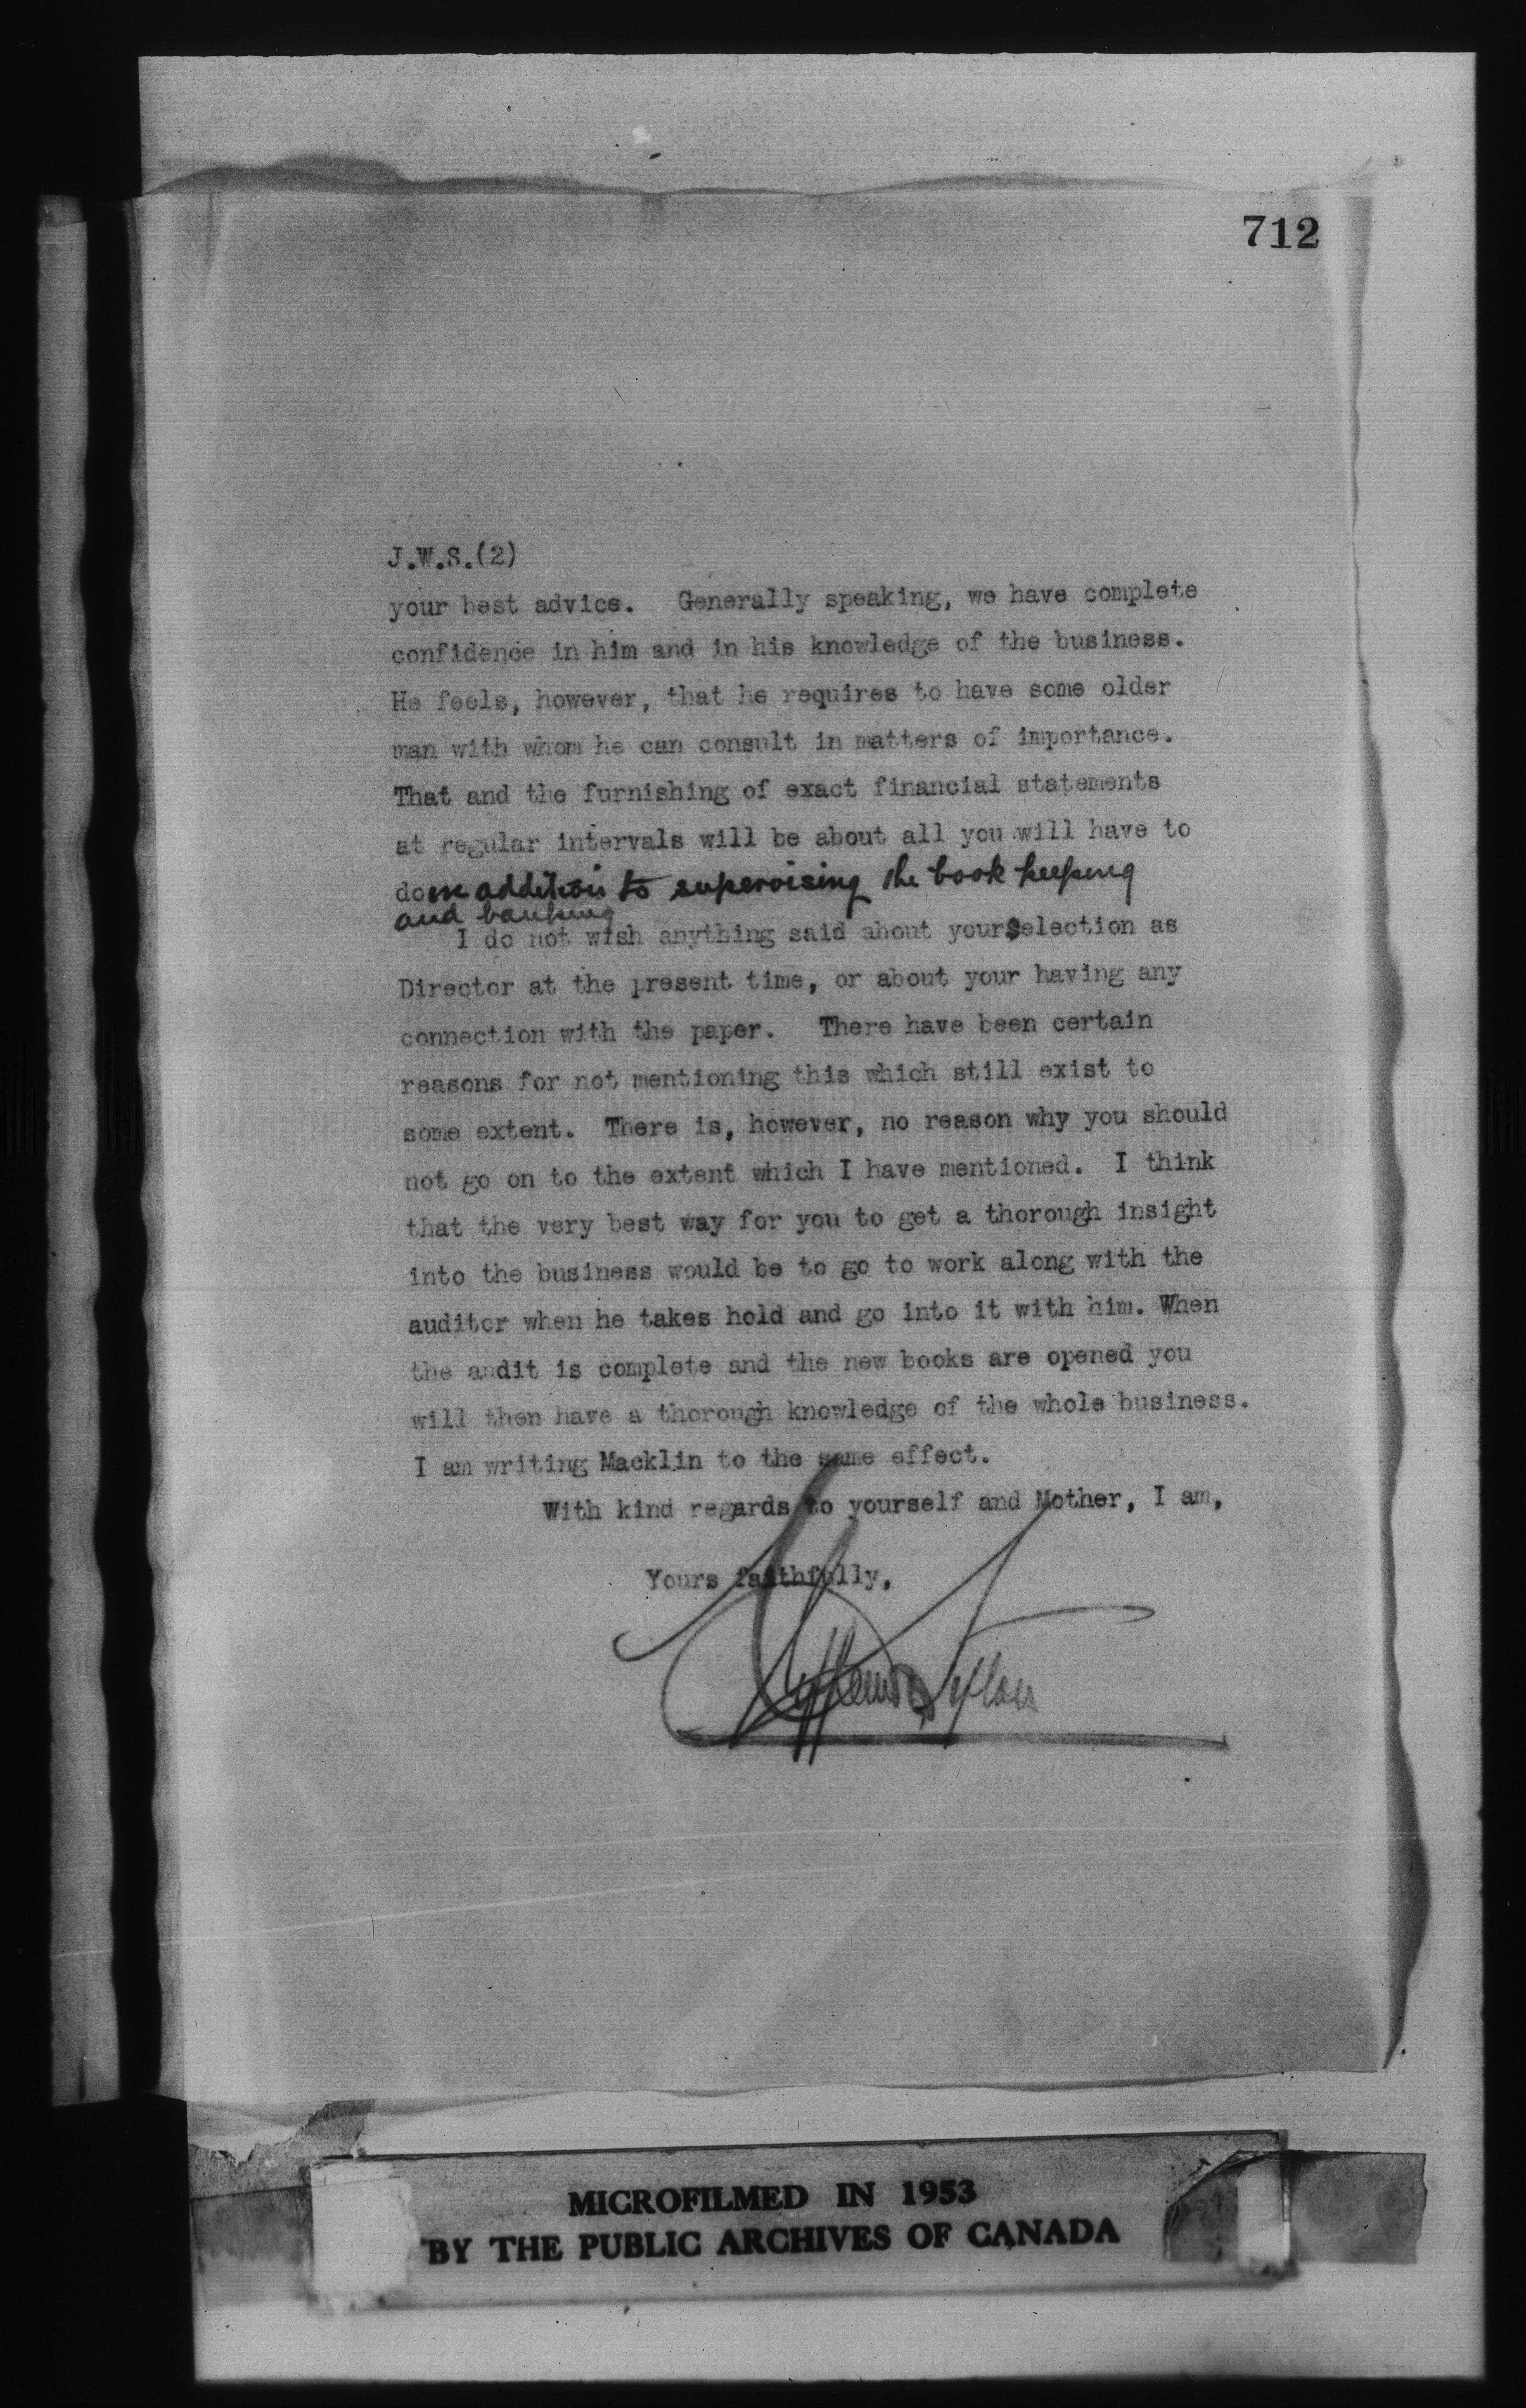 712
J.W.S.(2)
your best advice. Generally speaking, we have complete
confidence in him and in his knowledge of the business.
He feels, however, that he requires to have some older
man with whom he can consult in matters of importance.
That and the furnishing of exact financial statements
at regular intervals will be about all you will have to
do in addition to supervising the book keeping
and banking
I do not wish anything said about your selection as
Director at the present time, or about your having any
connection with the paper. There have been certain
reasons for not mentioning this which still exist to
some extent. There is, however, no reason why you should
not go on to the extent which I have mentioned. I think
that the very best way for you to get a thorough insight
into the business would be to go to work along with the
auditor when he takes hold and go into it with him. When
the audit is complete and the new books are opened you
will then have a thorough knowledge of the whole business.
I am writing Macklin to the same effect.
With kind regards to yourself and Mother, I am,
Yours faithfully,
MICROFILMED IN 1953
BY THE PUBLIC ARCHIVES OF CANADA